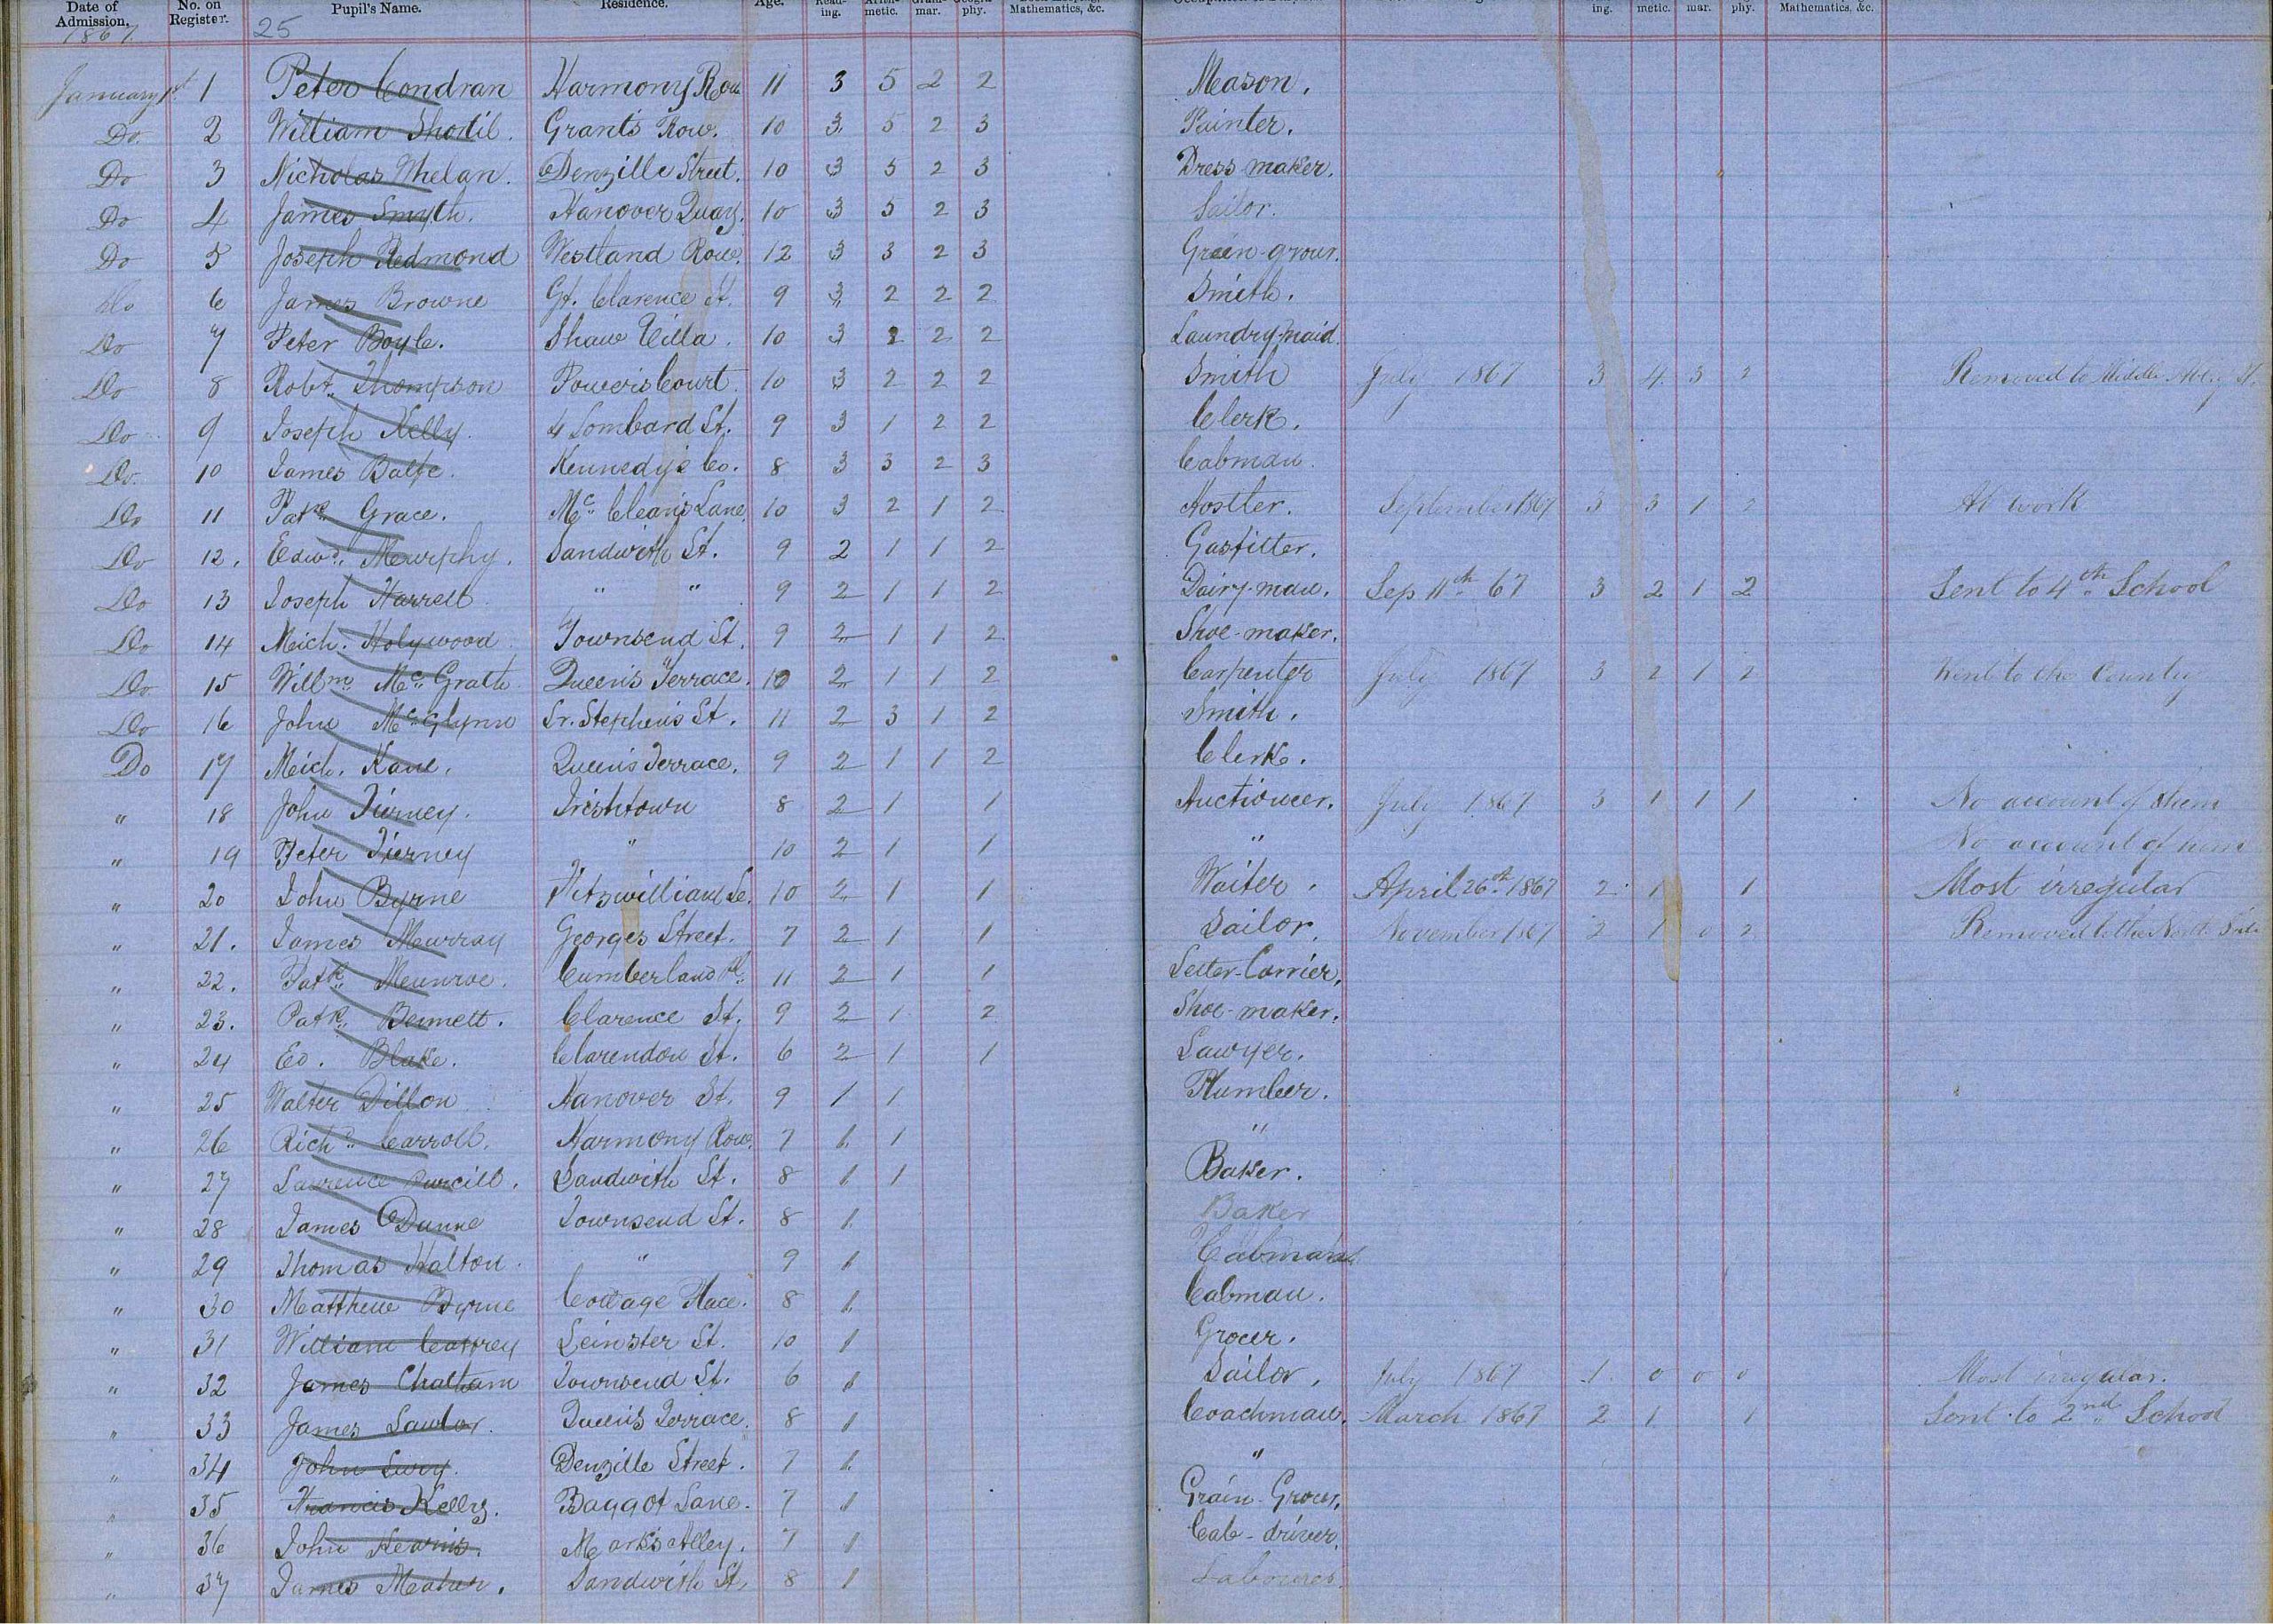 Date of Admission, No. on Register. Pupil's Name. Residence. Age. Read-ing. Arith-metic. Gram-mar. Geogra-phy. Mathematics, &c. ing. metic. mar. phy. Mathematics, &c.
1867. 25
January 1st 1 Peter Condran Harmony Row 11 3 5 2 2 Mason.
Do. 2 William Shortil. Grants Row. 10 3 5 2 3 Painter.
Do 3 Nicholas Whelan. Denzille Street. 10 3 5 2 3 Dress maker.
Do 4 James Smyth. Hanover Quay. 10 3 5 2 3 Sailor.
Do 5 Joseph Redmond Westland Row. 12 3 3 2 3 Green-grocer.
Do 6 James Browne Gt. Clarence St. 9 3 2 2 2 Smith.
Do 7 Peter Boyle. Shaw Villa. 10 3 2 2 2 Laundry-maid.
Do 8 Robt. Thompson Powers Court. 10 3 2 2 2 Smith July 1867 3 4 3 2 Removed to Middle Abbey St.
Do 9 Joseph Kelly. 4 Lombard St. 9 3 1 2 2 Clerk.
Do. 10 James Balfe. Kennedy's Co. 8 3 3 2 3 Cabman.
Do 11 Patk. Grace. Mc. Clean's Lane. 10 3 2 1 2 Hostler. September 1867 3 3 1 2 At work
Do 12. Edwd. Murphy. Sandwith St. 9 2 1 1 2 Gasfitter.
Do 13 Joseph Harrell " " 9 2 1 1 2 Dairy-man. Sep 11th 67 3 2 1 2 Sent to 4th School
Do 14 Mich. Holywood Townsend St. 9 2 1 1 2 Shoe-maker.
Do 15 Willm. Mc. Grath Queen's Terrace. 10 2 1 1 2 Carpenter July 1867 3 2 1 2 Went to the Country
Do 16 John Mc. Glynn Sr. Stephen's St. 11 2 3 1 2 Smith.
Do 17 Mich. Kane. Queen's Terrace. 9 2 1 1 2 Clerk.
" 18 John Tierney. Irishtown 8 2 1 1 Auctioneer. July 1867 3 1 1 1 No account of him
" 19 Peter Tierney " 10 2 1 1 " No account of him
" 20 John Byrne Fitzwilliam Le. 10 2 1 1 Waiter. April 26th 1867 2 1 1 Most irregular
" 21. James Murray Georges Street. 7 2 1 1 Sailor. November 1867 2 1 0 2 Removed to the North Side
" 22. Patk. Munroe. Cumberland Pl. 11 2 1 1 Letter-Carrier.
" 23. Patk. Bennett. Clarence St. 9 2 1 2 Shoe-maker.
" 24 Ed. Blake. Clarendon St. 6 2 1 1 Sawyer.
" 25 Walter Dillon Hanover St. 9 1 1 Plumber.
" 26 Richd. Carroll. Harmony Row. 7 1 1 "
" 27 Lawrence Purcill. Sandwith St. 8 1 1 Baker.
" 28 James Dunne Townsend St. 8 1 Baker
" 29 Thomas Halton. " 9 1 Cabman
" 30 Matthew Byrne Cottage Place. 8 1 Cabman.
" 31 William Caffrey Leinster St. 10 1 Grocer.
" 32 James Chatham Townsend St. 6 1 Sailor. July 1867 1 0 0 0 Most irregular.
" 33 James Lawlor. Queen's Terrace. 8 1 Coachman. March 1867 2 1 1 Sent to 2nd School
" 34 John Denzille Street. 7 1 "
" 35 Francis Kelly. Baggot Lane. 7 1 Grain-Grocer.
" 36 John Kearns. Mark's Alley. 7 1 Cab-driver.
" 37 James Meaher. Sandwith St. 8 1 Labourer